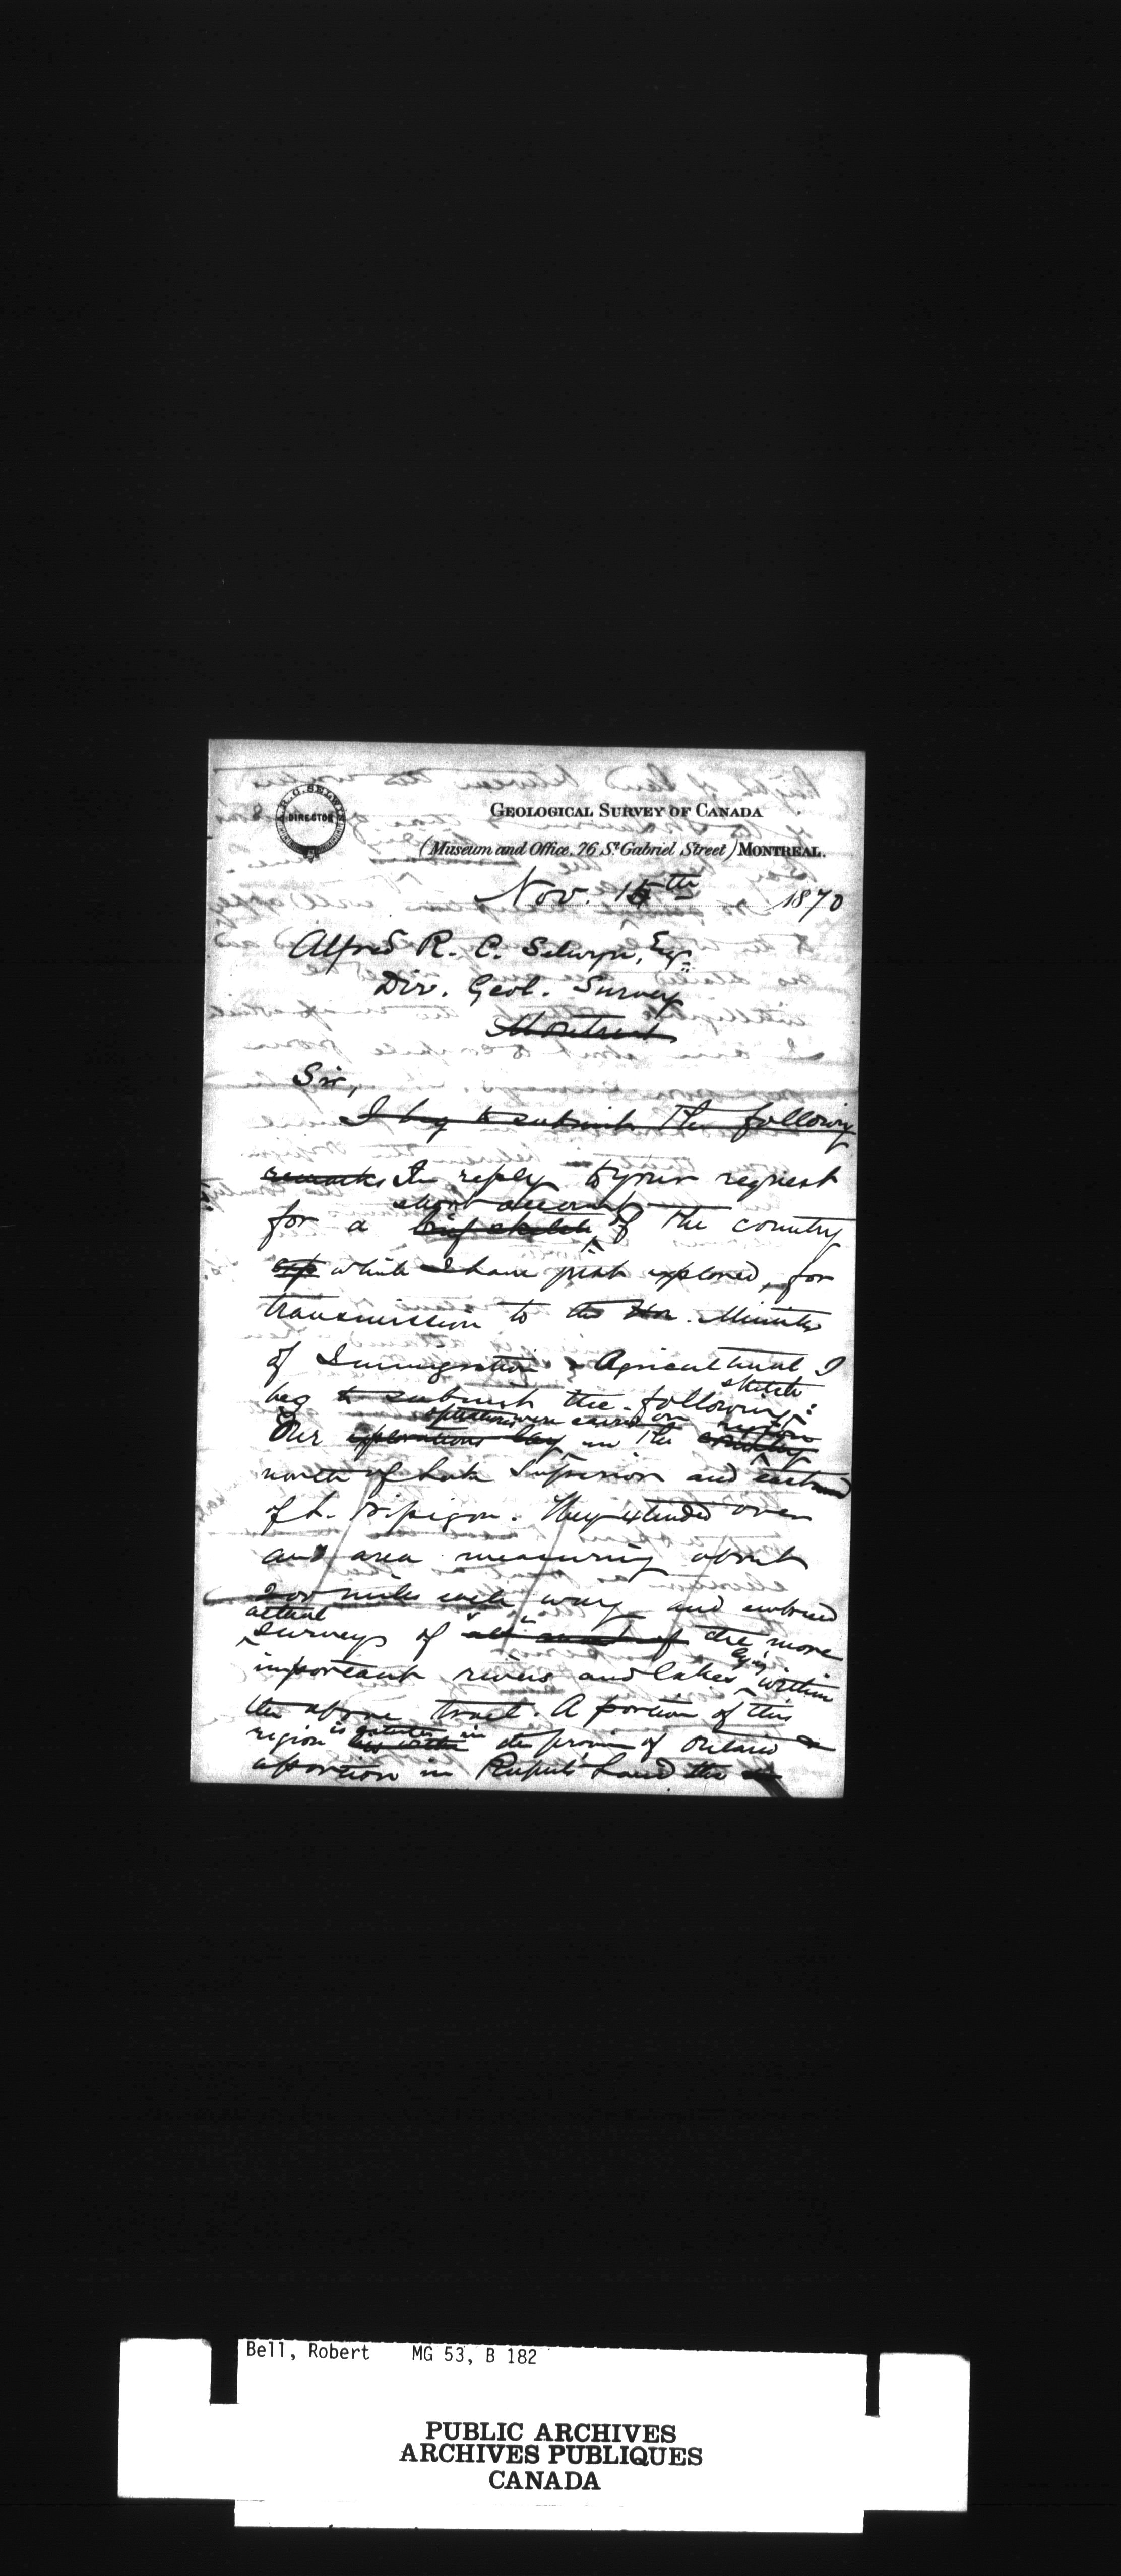 A.R.C. SELWYN
DIRECTOR
GEOLOGICAL SURVEY OF CANADA
(Museum and Office, 76 St Gabriel Street) MONTREAL.
Nov. 15th 1870
Alfred R. C. Selwyn, Esq.
Dir. Geol. Survey
Montreal
Sir,
I beg to submit the following
remarks In reply to your request
short account
for a brief sketch of the country
which I have just explored, for
transmission to the Hon. Minister
of Immigration & Agricultural I
sketch
beg to submit the following:
operations were carried on region
Our explorations lay in the country
north of Lake Superior and eastward
of L. Nipigon. They extended over
and area measuring about
200 miles each way and embraced
actual
surveys of all most of the more
lying
important rivers and lakes within
the above tract. A portion of this
is situated in
region lies within the province of Ontario &
a portion in Rupert's Land the
Bell, Robert MG 53, B 182
PUBLIC ARCHIVES
ARCHIVES PUBLIQUES
CANADA